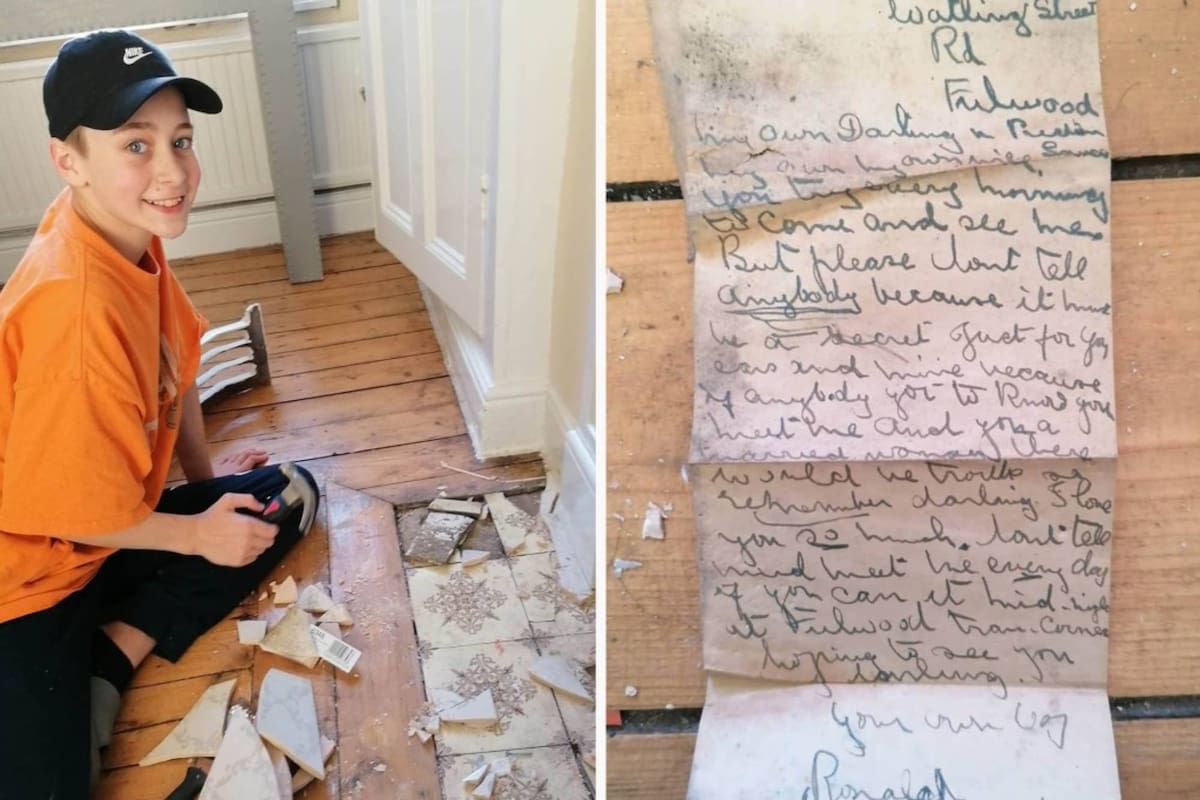 NIKE
Watling Street
Rd
Fulwood
my own Darling in Preston
my own
you try every morning
to come and see me.
But please dont tell
anybody because it must
be a secret Just for your
ears and mine because
if anybody got to Know you
meet me and you a
married woman there
would be trouble so
remember darling I love
you so much. Dont tell
mind meet me every day
if you can it mid-night
at Fulwood tram-Corner
hoping to see you
darling.
your own boy
Ronald